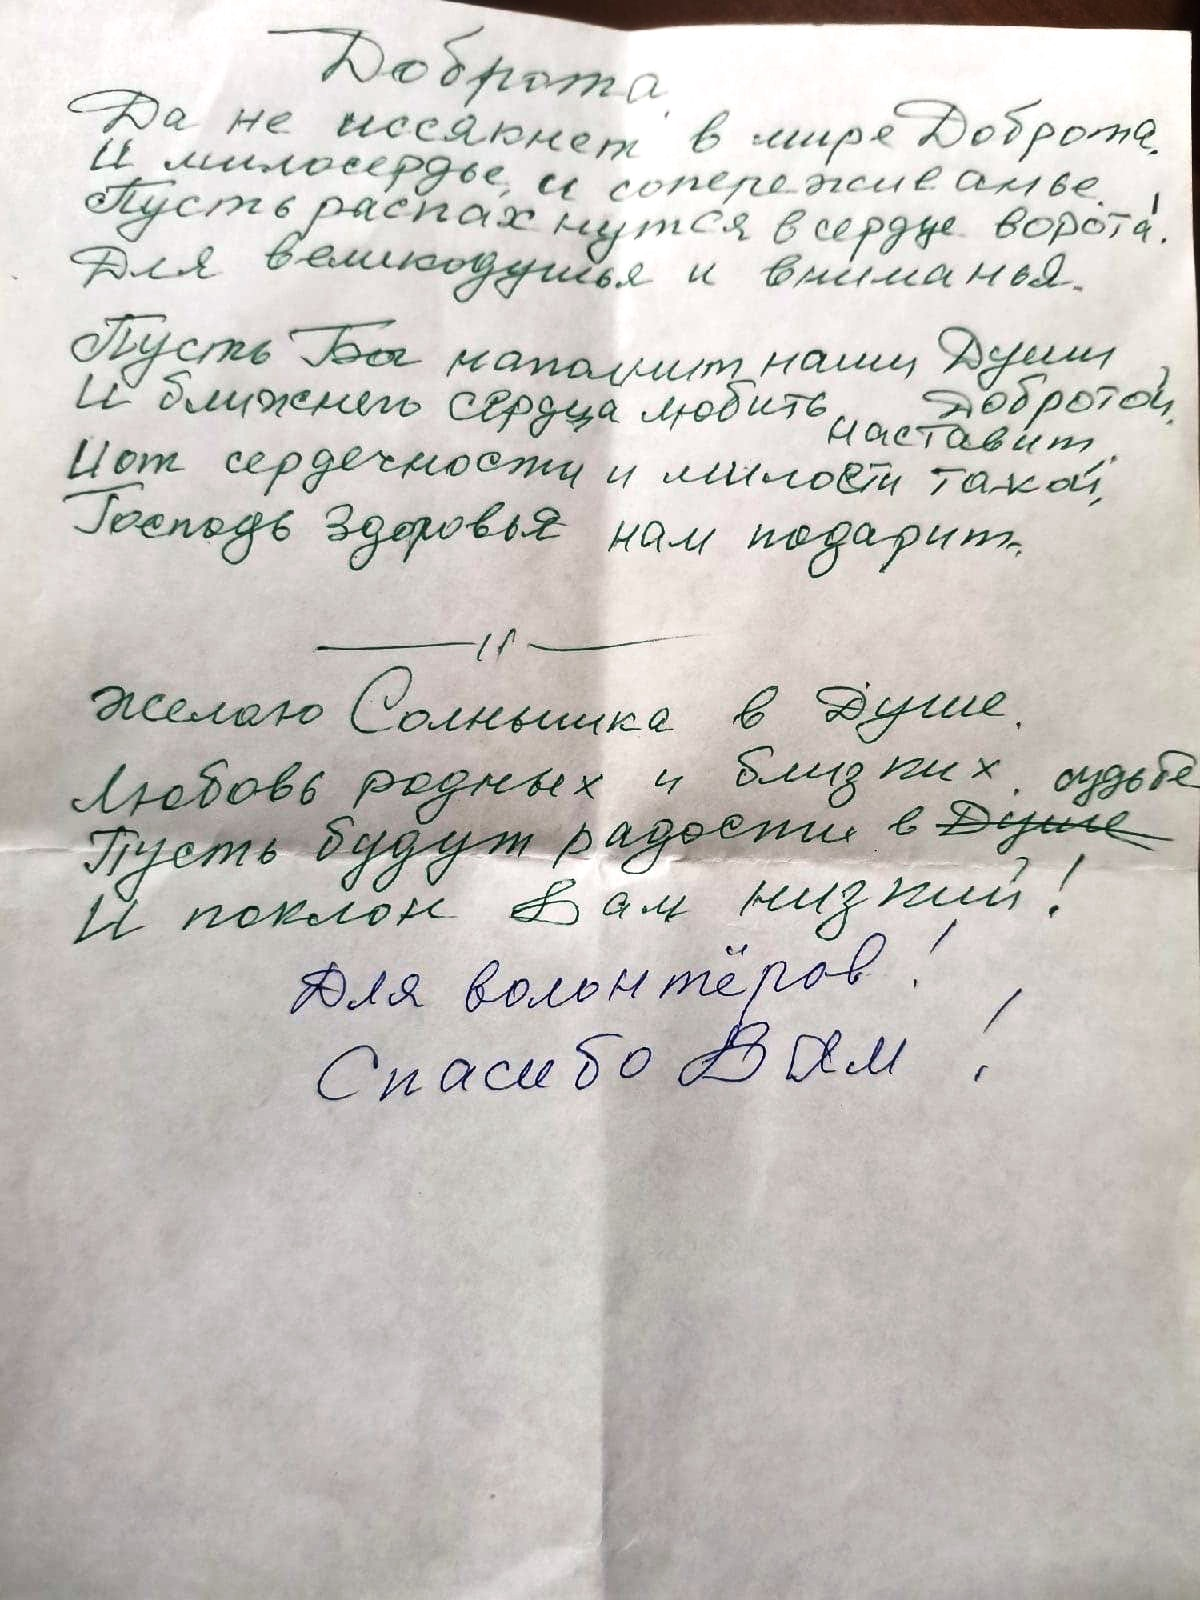 Доброта
Да не иссякнет в мире Доброта.
И милосердье, и сопереживанье.
Пусть распахнутся в сердце ворота!
Для великодушья и вниманья.
Пусть наполнит наши Души Добротой,
И ближнего сердца любить наставит.
И от сердечности и милости такой,
Господь здоровья нам подарит.
—— 11 ——
Желаю Солнышка в Душе.
Любовь родных и близких.
Пусть будут радости в Душе судьбе
И поклон Вам низкий!
Для волонтёров!
Спасибо ВАм!